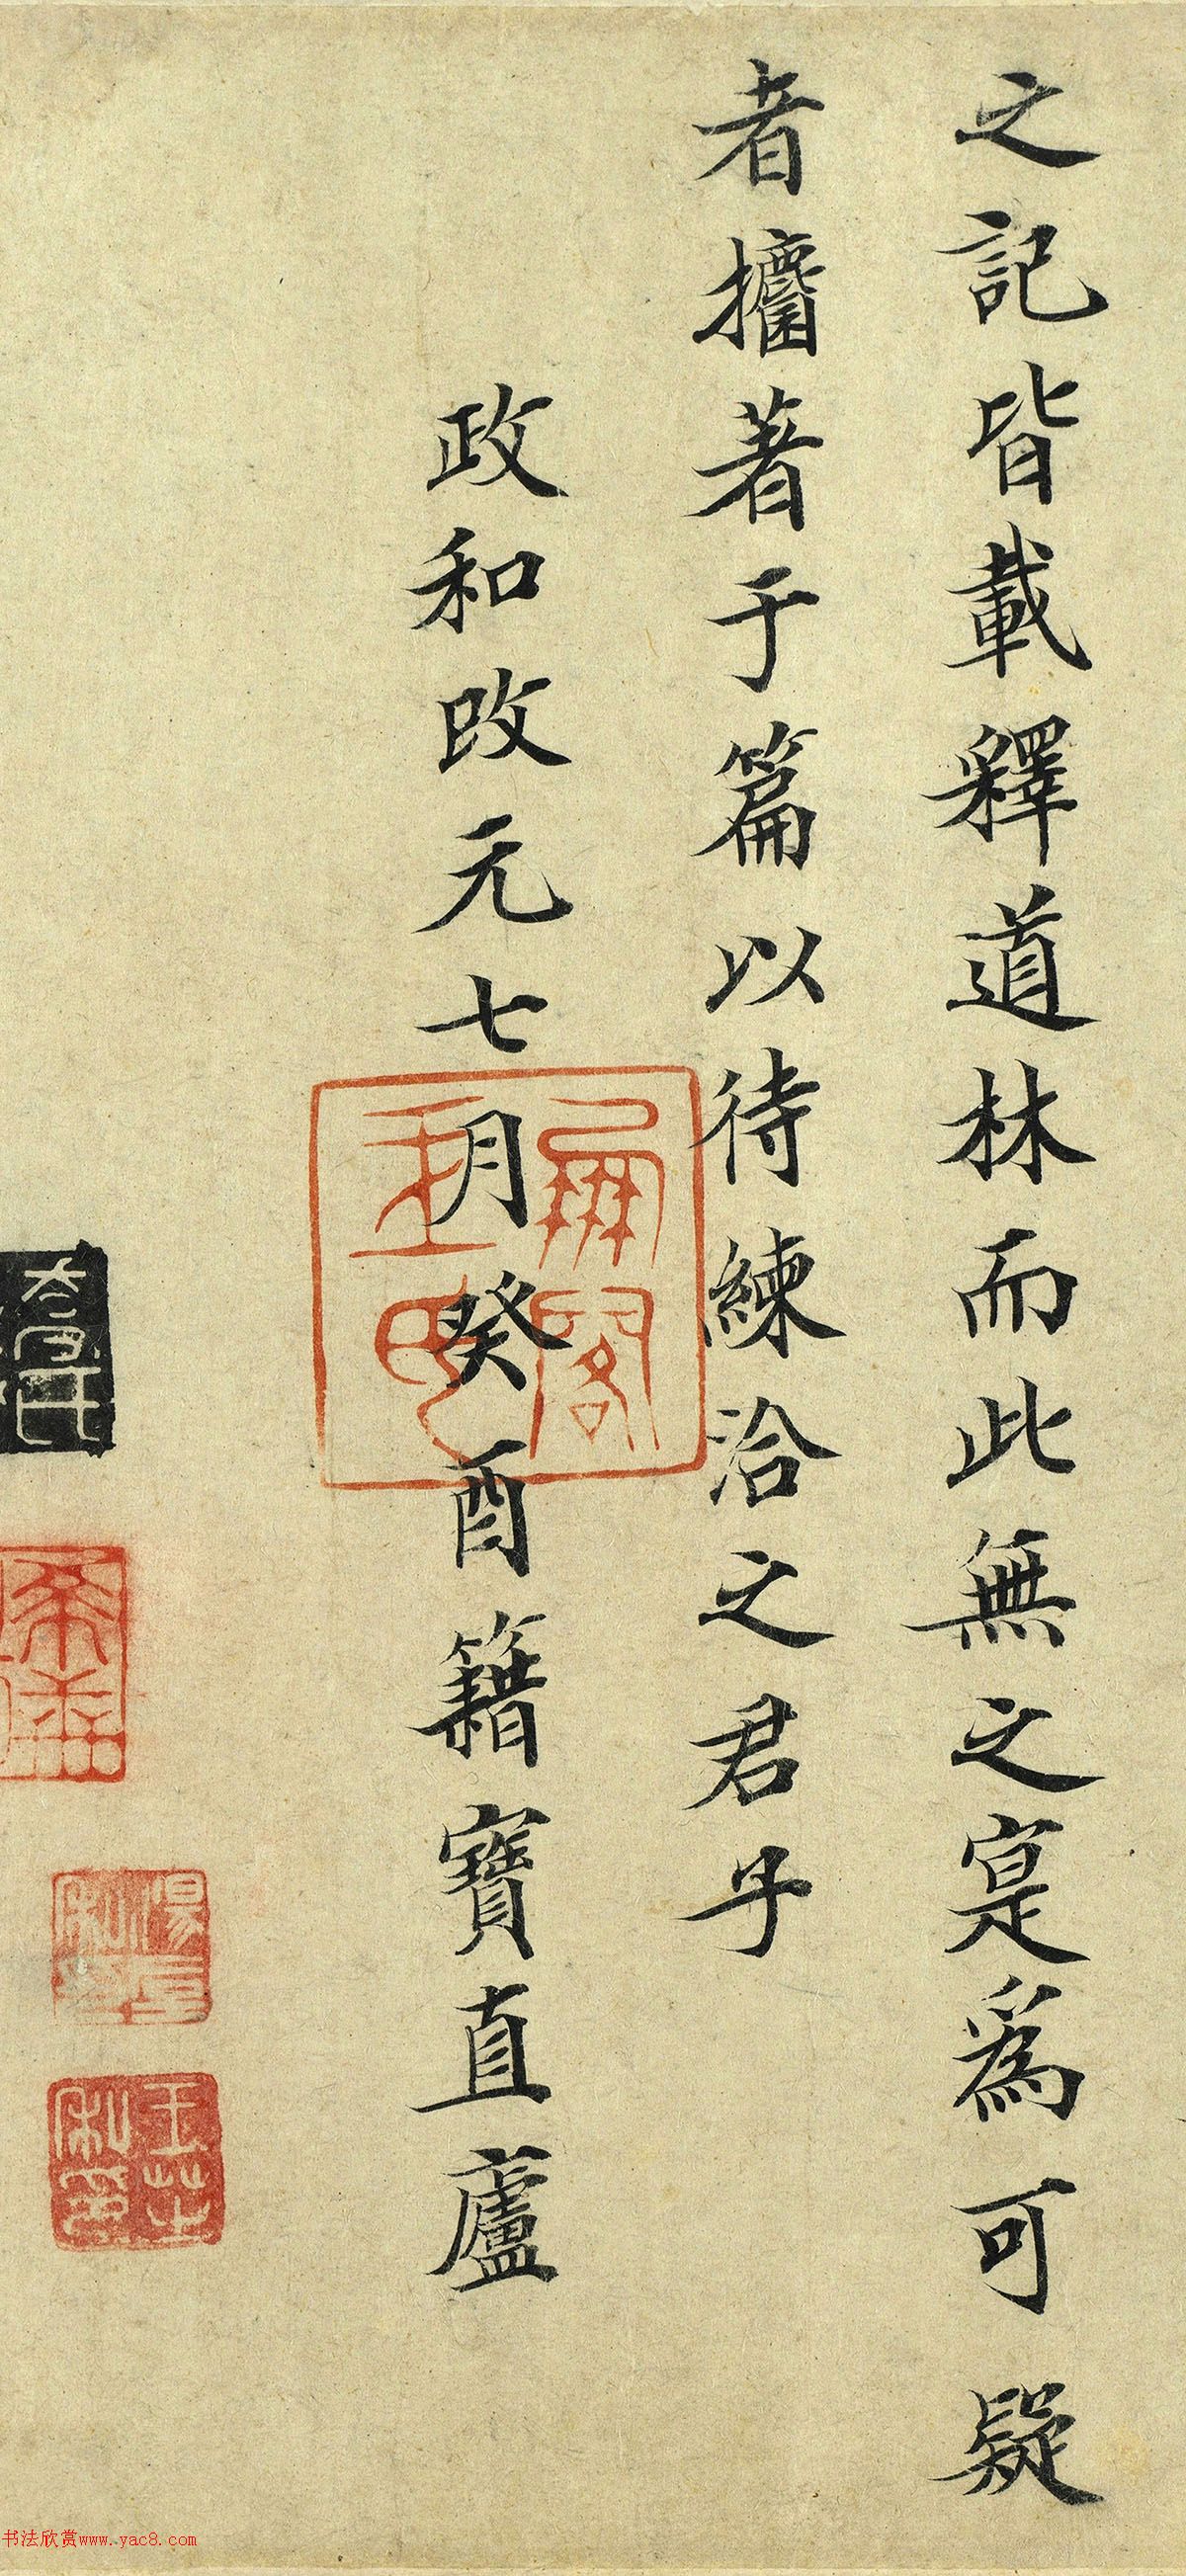 之記皆載釋道林而此無之寔爲可疑
者攟著于篇以待練洽之君子
政和改元七月癸酉籍寶直廬
書法欣赏www.yac8.com